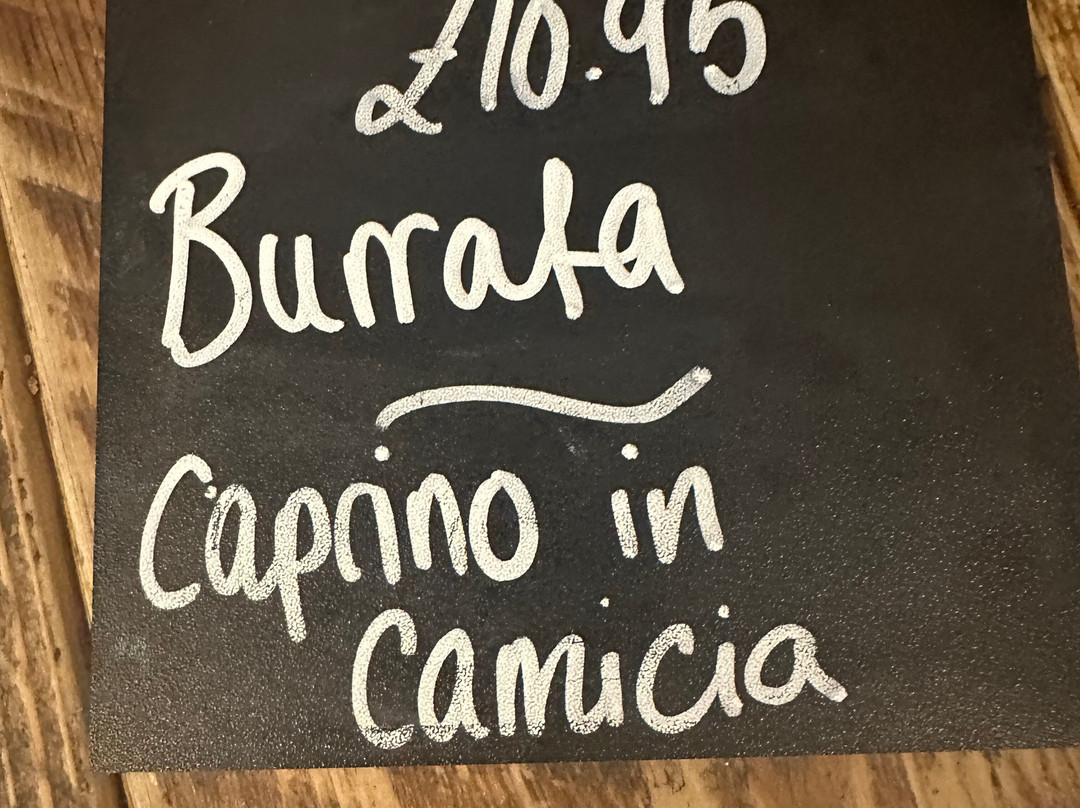 £10.95
Burrata
Caprino in
Camicia